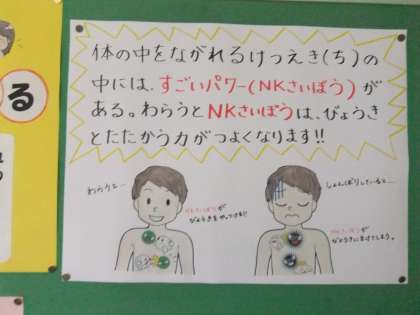 体の中をながれるけつえき(ち)の
中には、すごいパワー(NKさいぼう)が
ある。わらうとNKさいぼうは、びょうき
とたたかう力がつよくなります!!
わらうと…
NKさいぼうが
びょうきをやっつける!!
しょんぼりしていると…
NKさいぼうが
びょうきにまけてしまう。
る